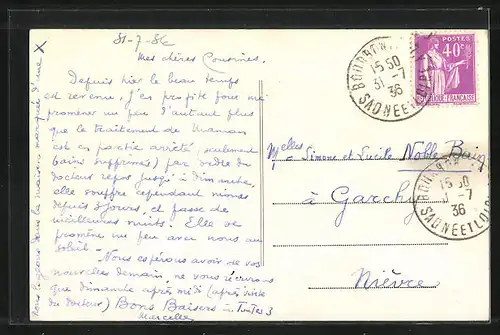 31-7-36
Mes chères Cousines.
Depuis hier le beau temps
est revenu, j'en profite pour me
promener un peu d'autant plus
que le traitement de Maman
est en partie arrêté, seulement
bains supprimés) par ordre du
docteur repos jusqu'à Dimanche,
elle souffre cependant moins
depuis 2 jours, et passe de
meilleures nuits. Elle se
promène un peu avec nous au
soleil -
Nous espérons avoir de vos
nouvelles demain, ne vous écrirons
que dimanche après midi (après visite
du docteur) Bons Baisers à Toutes 3
Marcelle
Nous logeons dans la maison marquée d'une X
Melles Simone et Lucile Noble
à Garchy
Nièvre
BOURBON
15 30
31 -7
36
SAONE ET LOIRE
POSTES
40c
FRANÇAISE
BOURBON
15 30
31 -7
36
SAONE ET LOIRE